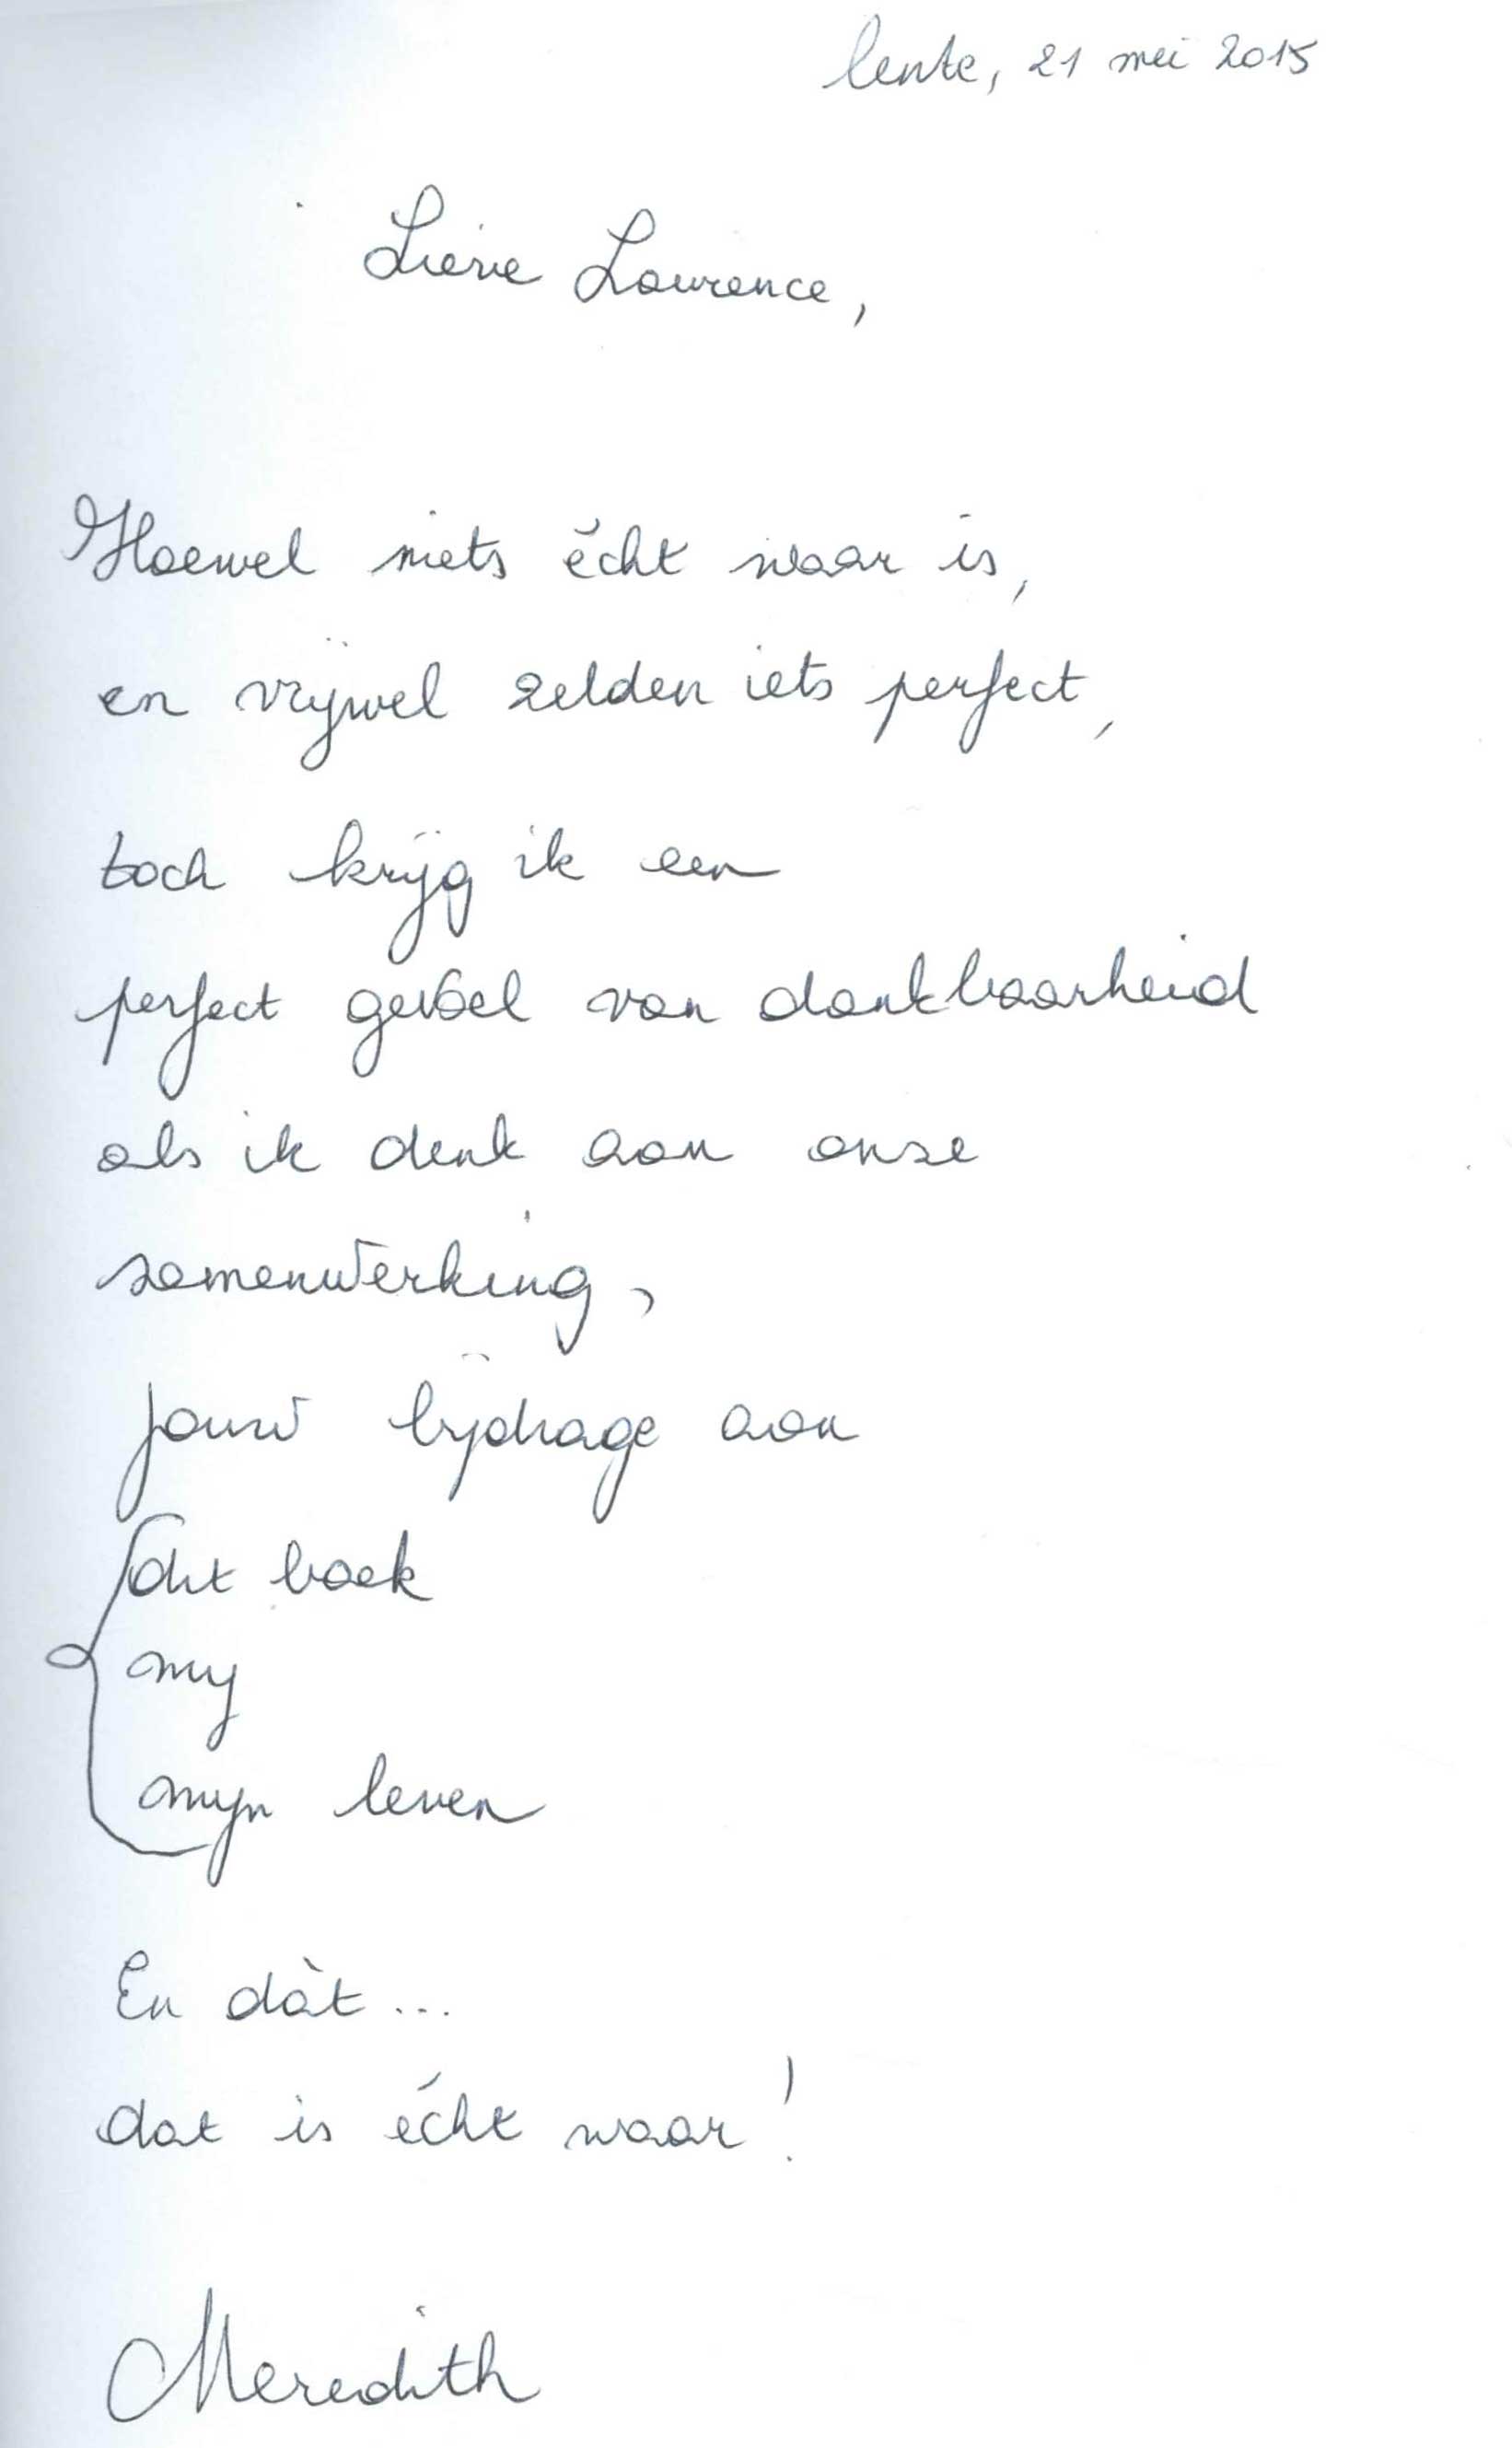 lente, 21 mei 2015
Lieve Laurence,
Hoewel niets écht waar is,
en vrijwel zelden iets perfect,
toch krijg ik een
perfect gevoel van dankbaarheid
als ik denk aan onze
samenwerking,
jouw bijdrage aan
dit boek
mij
mijn leven
En dàt...
dat is écht waar!
Meredith